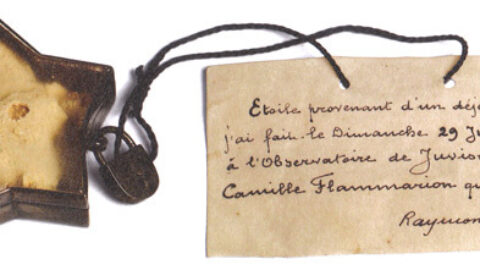 Etoile provenant d'un déj
j'ai fait le Dimanche 29 Ju
à l'Observatoire de Juvis
Camille Flammarion qu
Raymon